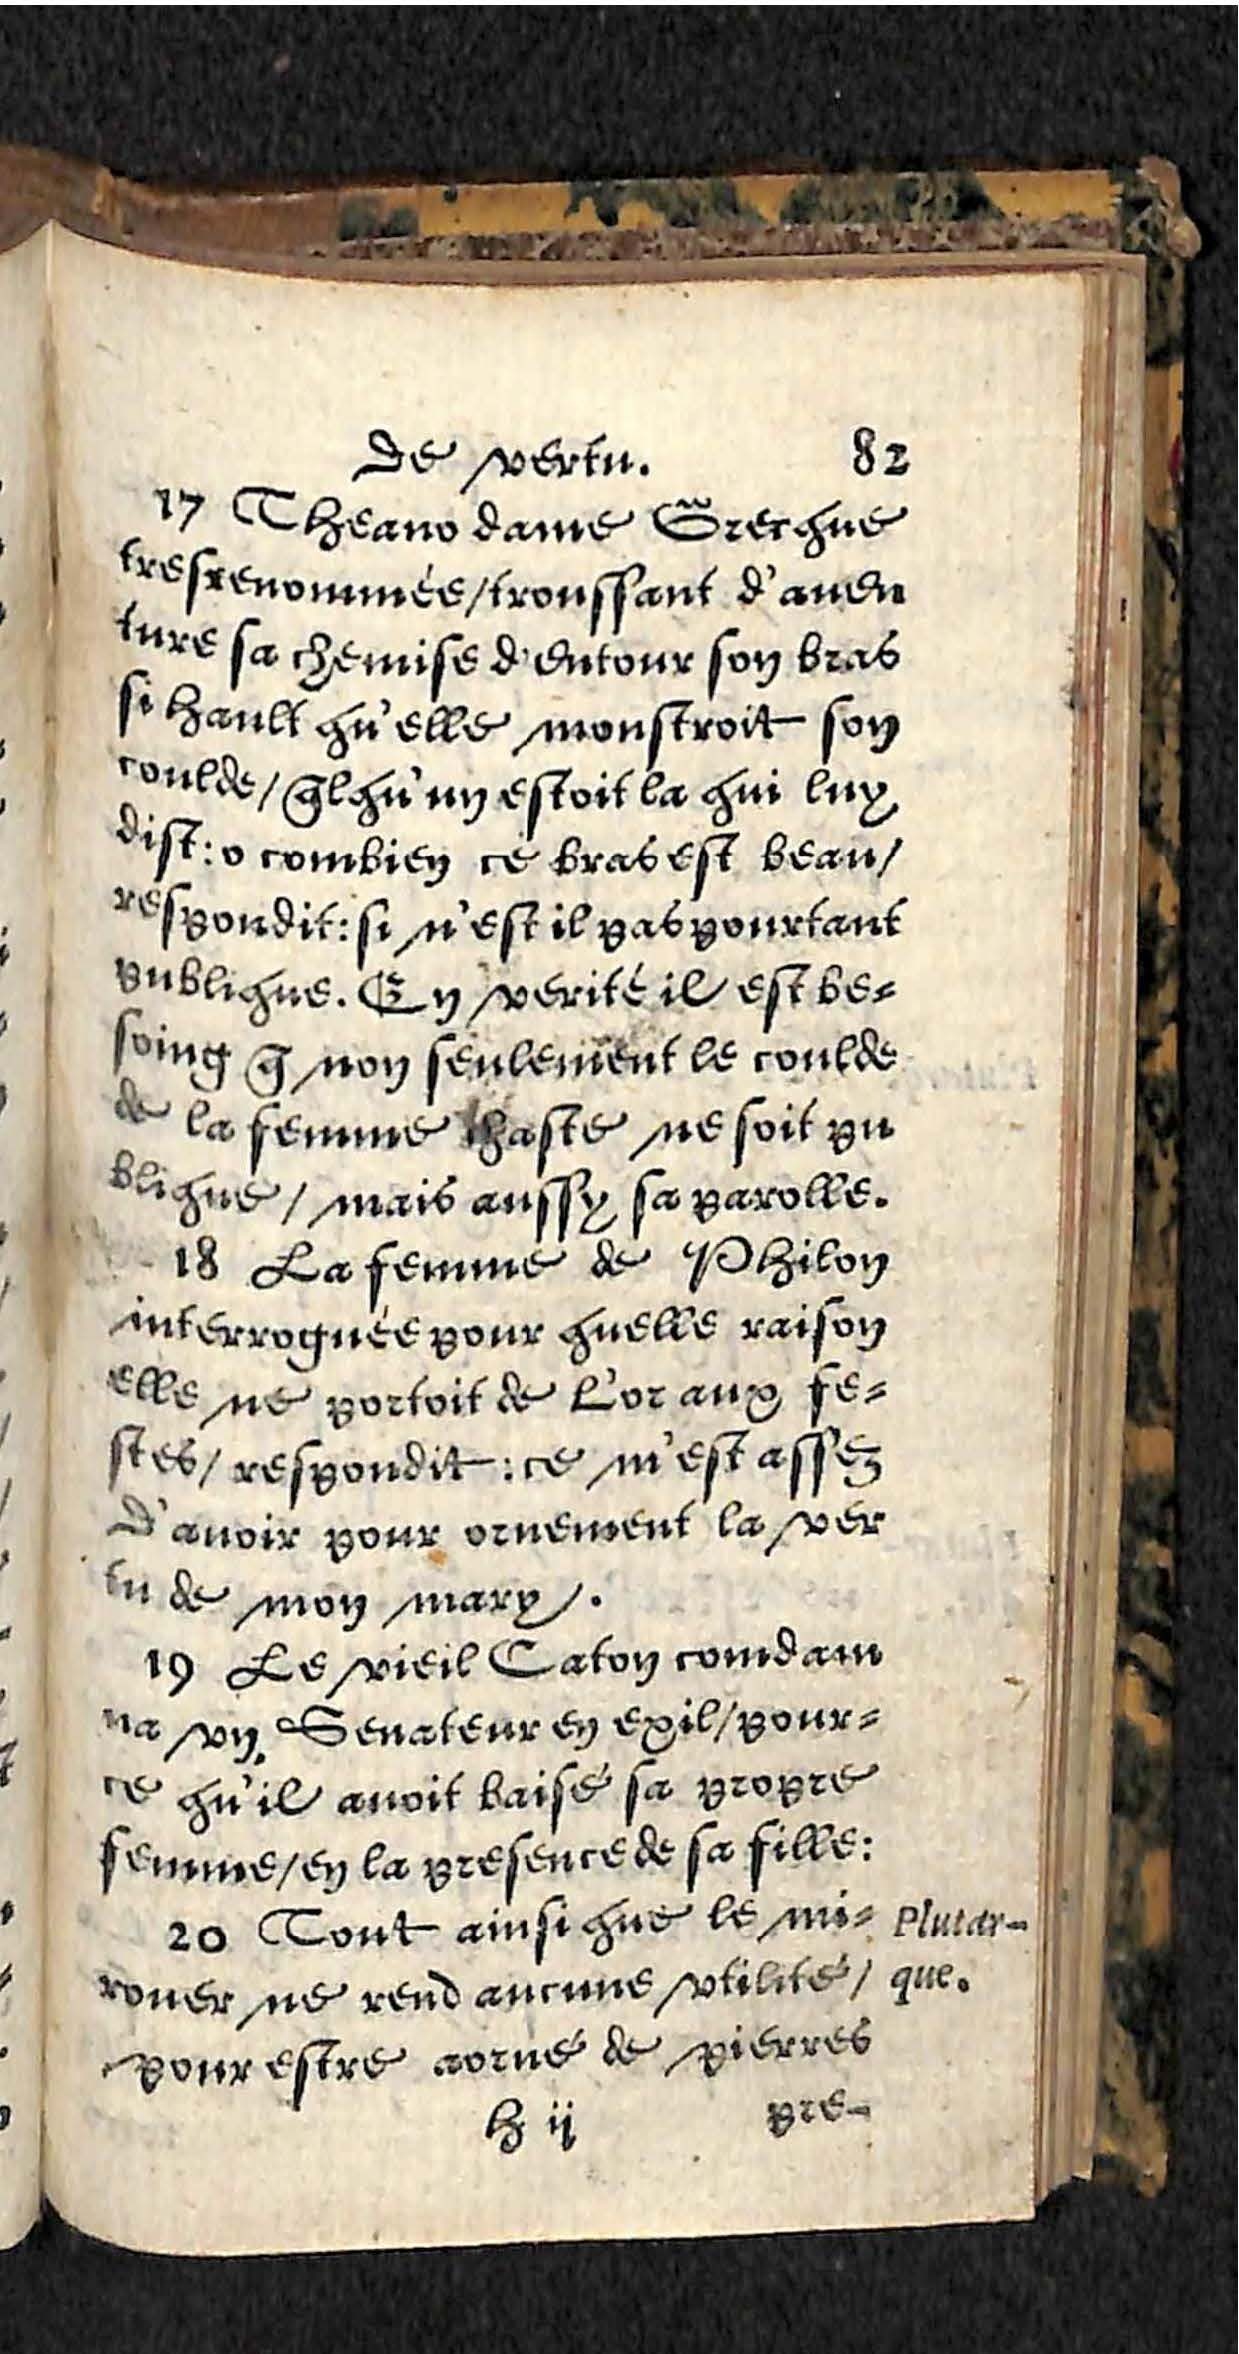 de vertu. 82
17 Theano dame Grecque
tresrenommée/troussant d'auen
ture sa chemise d'entour son bras
si hault qu'elle monstroit son
coulde/ q̃lqu'un estoit la qui luy
dist: o combien ce bras est beau/
respondit: si n'est il pas pourtant
publique. En verité il est be-
soing q̃ non seulement le coulde
de la femme chaste ne soit pu
blique/ mais aussy sa parolle.
18 La femme de Philon
interroguée pour quelle raison
elle ne portoit de l'or aux fe-
stes/ respondit: ce m'est assez
d'auoir pour ornement la ver
tu de mon mary.
19 Le vieil Caton comdam
na vn Senateur en exil/pour-
ce qu'il auoit baisé sa propre
femme/en la presence de sa fille:
20 Tout ainsi que le mi-
rouer ne rend aucune vtilité/
pour estre aorné de pierres
h ij pre-
Plutar-
que.